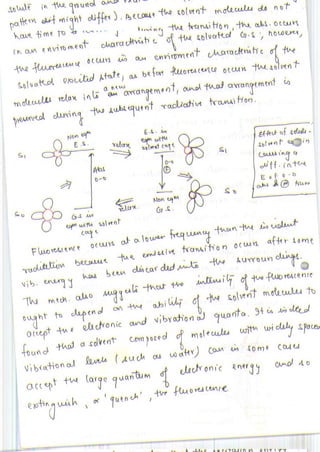 solute in the ground and
pattern might differ). Because the solvent molecules do not
have time to during the transition, the abs. occurs
in an enviroment characteristic of the solvated G.S, however,
the fluorescence occurs in an enviroment characteristic of the
solvated excited state, as before fluorescence occurs the solvent
molecules relax into a new arrangement, and that arrangement is
preserved during the subsequent radiative transition.
Non eqm
E.S.
relax
E.S. in
eqm with
solvent cage
S1
S1
Abs
0-0
0-0
F
effect of solute-
solvent
causing a
diff. in the
E of 0-0
abs & F
S0
S0
G.S in
eqm with solvent
cage
relax
Non eqm
G.S.
Fluorescence occurs at a lower frequency than the incident
radiation because the emissive transition occurs after some
vib. energy has been discarded into the surroundings.
The mech. also suggests that the intensity of the fluorescence
ought to depend on the ability of the solvent molecules to
accept the electronic and vibrational quanta. It is indeed
found that a solvent composed of molecules with widely spaced
vibrational levels (such as water) can in some cases
accept the large quantum of electronic energy and so
extinguish, or 'quench', the fluorescence